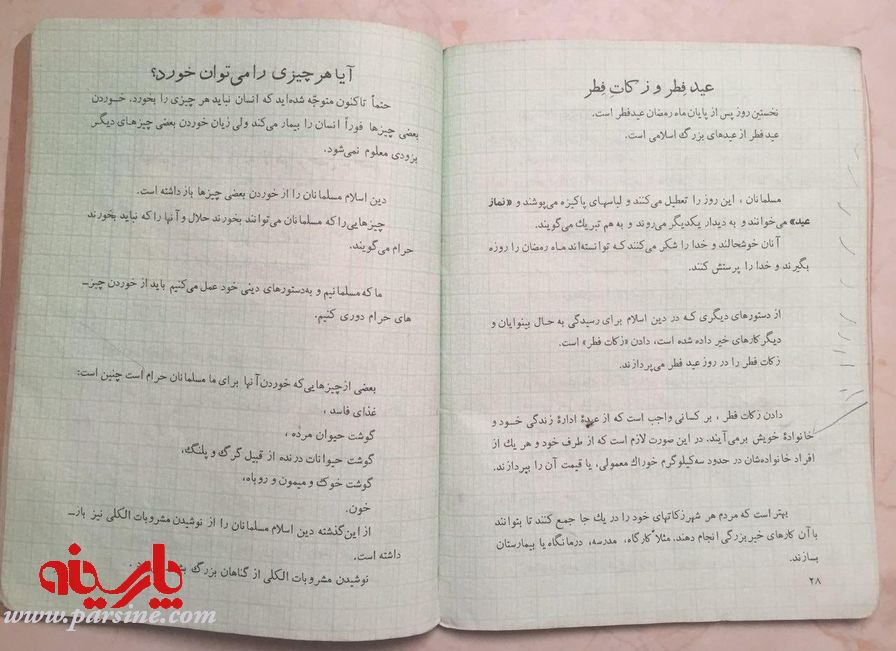 عید فِطر و زکاتِ فِطر
نخستین روز پس از پایان ماه رمضان عیدفطر است.
عید فطر از عیدهای بزرگ اسلامی است.
مسلمانان ، این روز را تعطیل می‌کنند و لباسهای پاکیزه می‌پوشند و «نماز
عید» می‌خوانند و به دیدار یکدیگر می‌روند و به هم تبریك می‌گویند.
آنان خوشحالند و خدا را شکر می‌کنند که توانسته‌اند ماه رمضان را روزه
بگیرند و خدا را پرستش کنند.
از دستورهای دیگری که در دین اسلام برای رسیدگی به حال بینوایان و
دیگر کارهای خیر داده شده است، دادن «زکات فطر» است.
زکات فطر را در روز عید فطر می‌پردازند.
دادن زکات فطر ، بر کسانی واجب است که از عهدهٔ ادارهٔ زندگی خود و
خانوادهٔ خویش برمی‌آیند. در این صورت لازم است که از طرف خود و هر یك از
افراد خانواده‌شان در حدود سه‌کیلوگرم خوراك معمولی، یا قیمت آن را بپردازند.
بهتر است که مردم هر شهر زکاتهای خود را در یك جا جمع کنند تا بتوانند
با آن کارهای خیر بزرگی انجام دهند. مثلاً کارگاه، مدرسه، درمانگاه یا بیمارستان
بسازند.
۲۸
آیا هر چیزی را می‌توان خورد؟
حتماً تاکنون متوجّه شده‌اید که انسان نباید هر چیزی را بخورد. خوردن
بعضی چیزها فوراً انسان را بیمار می‌کند ولی زیان خوردن بعضی چیزهای دیگر
بزودی معلوم نمی‌شود.
دین اسلام مسلمانان را از خوردن بعضی چیزها بازداشته است.
چیزهایی‌را که مسلمانان می‌توانند بخورند حلال و آنها را که نباید بخورند
حرام می‌گویند.
ما که مسلمانیم و به‌دستورهای دینی خود عمل می‌کنیم باید از خوردن چیز‌ـ
های حرام دوری کنیم.
بعضی از چیزهایی‌که خوردن آنها برای ما مسلمانان حرام است چنین است:
غذای فاسد ،
گوشت حیوان مرده ،
گوشت حیوانات درنده از قبیل گرگ و پلنگ،
گوشت خوك و میمون و روباه،
خون.
از این‌گذشته دین اسلام مسلمانان را از نوشیدن مشروبات الکلی نیز باز‌ـ
داشته است.
نوشیدن مشروبات الکلی از گناهان بزرگ
پارسینه
www.parsine.com